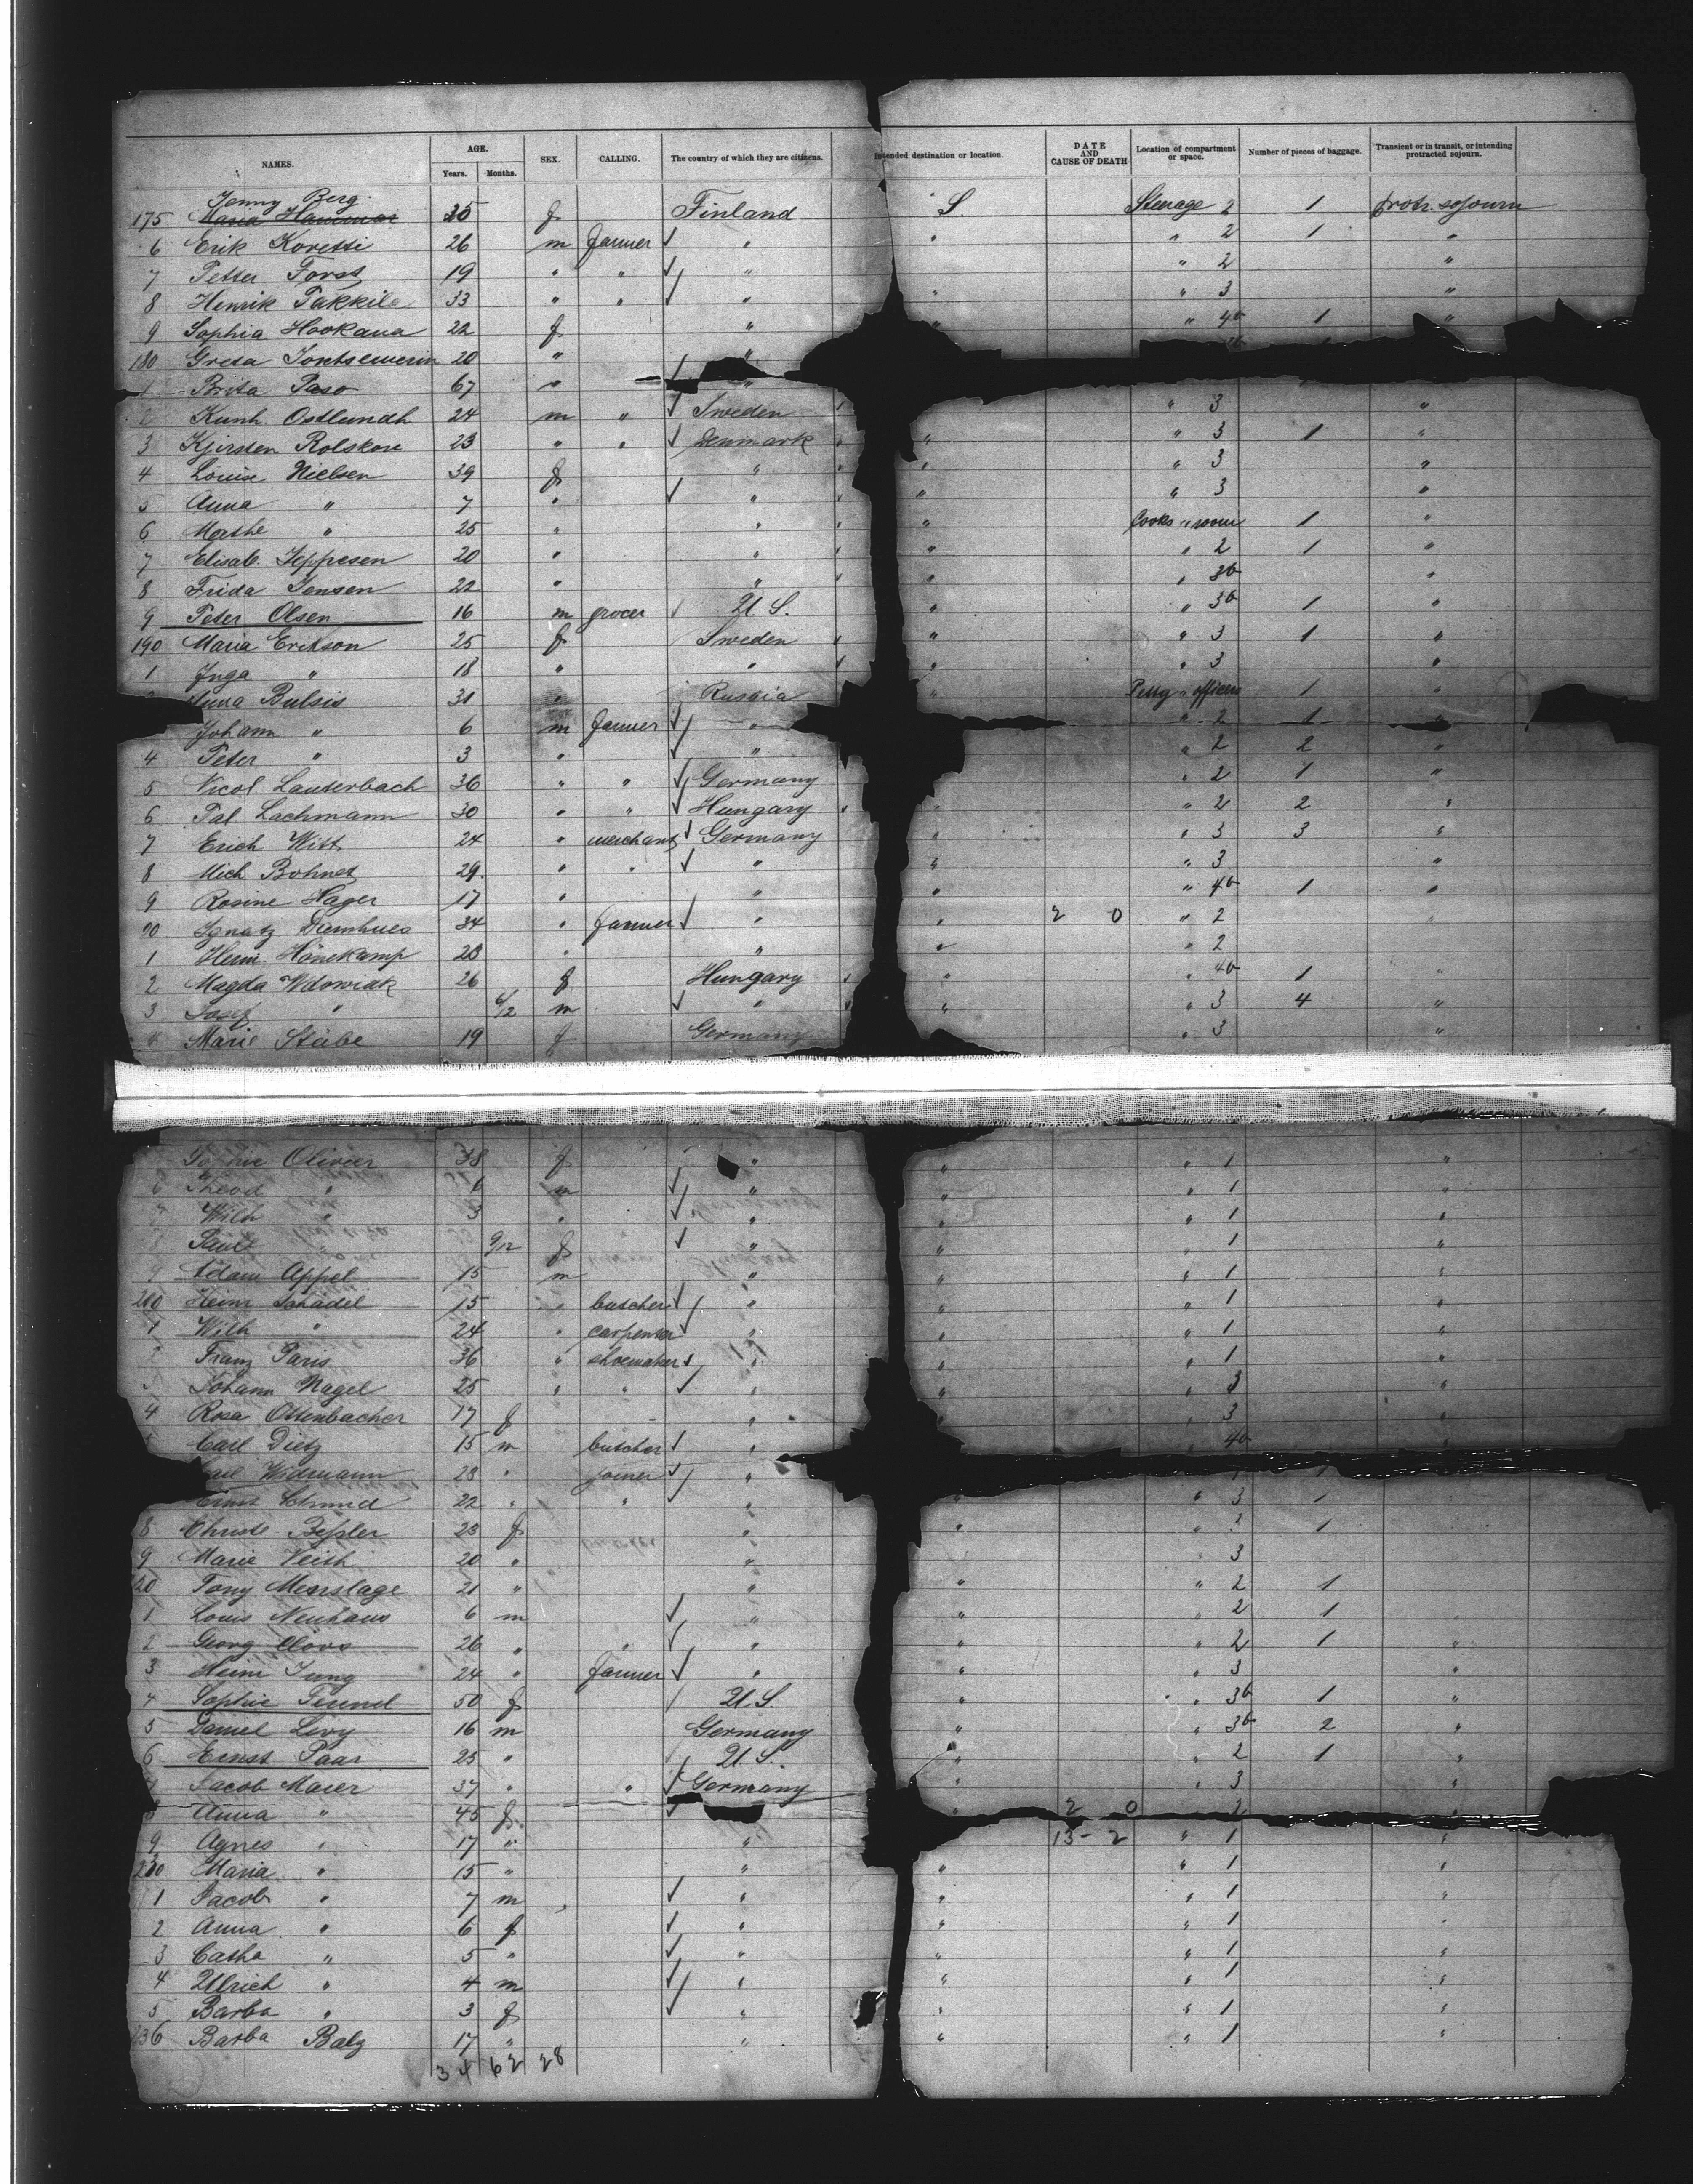 NAMES. AGE. Years. Months. SEX. CALLING. The country of which they are citizens. Intended destination or location. DATE AND CAUSE OF DEATH Location of compartment or space. Number of pieces of baggage. Transient or in transit, or intending protracted sojourn.
Jenny Berg
175 Maria 35 f Finland S. Steerage 2 1 protr. sojourn
6 Erik Koretti 26 m farmer " " " 2 1 "
7 Petter Forst 19 " " " " 2 "
8 Henrik Pakkila 33 " " " " " 3 "
9 Sophia Hookana 22 f " " " 4b 1 "
180 Greta 20 " "
1 Brita Paso 67 " "
2 Kunh. Ostlundh 24 m " Sweden " 3 "
3 Kjirsten Rolskov 23 " " Denmark " " 3 1 "
4 Louise Nielsen 39 f " " " 3 "
5 Anna " 7 " " " " 3 "
6 Marthe " 25 " " " Cooks " room 1 "
7 Elisab. Jeppesen 20 " " " " 2 1 "
8 Frida Jensen 22 " " " " 3b "
9 Peter Olsen 16 m grocer U.S. " " 3b 1 "
190 Maria Erikson 25 f Sweden " " 3 1 "
1 Inga " 18 " " " " 3 "
Anna Bulsis 31 " Russia " Petty " officers 1 "
Johann " 6 m farmer " " 2 1 "
4 Peter " 3 " " " 2 2 "
5 Nicol Lauterbach 36 " " Germany " 2 1 "
6 Pal Lachmann 30 " " Hungary " " 2 2 "
7 Erich Witt 24 " merchant Germany " " 3 3 "
8 Mich Bohnet 29 " " " " " 3 "
9 Rosine Hager 17 " " " " 4b 1 "
Ignatz 34 " farmer " " 2 0 " 2 "
1 Herm. Hönekamp 23 " " " " 2
2 Magda Wdowiak 26 f Hungary " " 4b 1 "
3 Josef " m " " " 3 4 "
4 Marie Steibe 19 f Germany " 3 "
Sophie Olivier 38 f " " " 1 "
6 Theod " 6 m " " " 1 "
7 Wilh " 3 " " " " 1 "
" 9/12 f " " " 1 "
9 Adam Appel 15 m " " " 1 "
210 Heinr Schädel 15 " butcher " " " 1 "
1 Wilh " 24 " carpenter " " " 1 "
2 Franz Paris 36 " shoemaker " " " 1 "
Johann Nagel 25 " " " " " 3 "
4 Rosa Ottenbacher 17 f " " " 3 "
Carl Dietz 15 m butcher " " 4b "
Widmann 28 " joiner "
Ernst Schmid 22 " " " " " 3 1
8 Christe 23 f " " " 3 1
9 Marie Veith 20 " " " 3
20 Tony Menslage 21 " " " " 2 1
1 Louis Neuhaus 6 m " " " 2 1
2 Georg 26 " " " " " 2 1 "
3 Heinr Jung 24 " farmer " " " 3 "
4 Sophie 50 f U.S. " " 3b 1 "
5 Daniel Levy 16 m Germany " " 3b 2 "
6 Ernst Paar 25 " U.S. " " 2 1 "
7 Jacob Maier 37 " " Germany " " 3 "
8 Anna " 45 f " 2 0 " 2 "
9 Agnes " 17 " " 13 - 2 " 1 "
230 Maria " 15 " " " " 1 "
1 Jacob " 7 m " " " 1 "
2 Anna " 6 f " " " 1 "
3 Catha " 5 " " " " 1 "
4 Ulrich " 4 m " " " 1 "
5 Barba " 3 f " " " 1 "
236 Barba Balz 17 " " " " 1 "
34 62 28